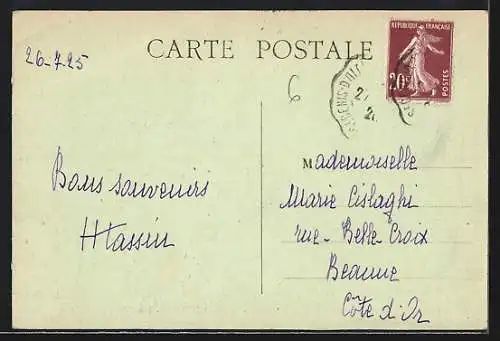 26-7.25
CARTE POSTALE
REPUBLIQUE FRANÇAISE
20c
POSTES
6
Mademoiselle
Marie Cislaghi
rue - Belle-Croix
Beaune
Côte d'Or
Bons souvenirs
HLassin